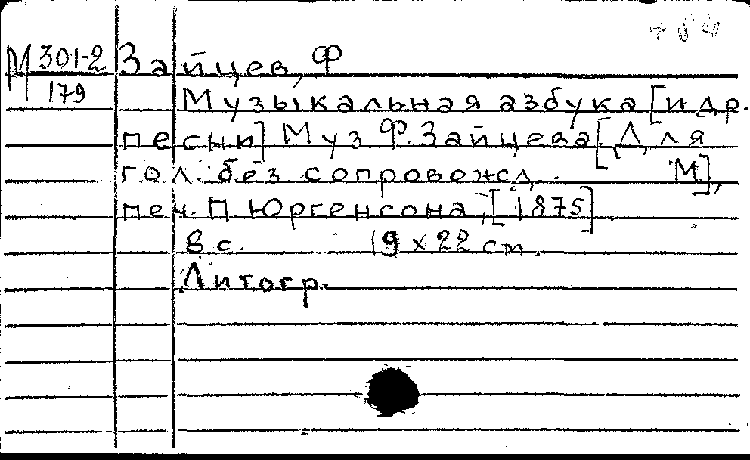 М 301-2 Зайцев, Ф
179
Музыкальная азбука [и др.
песни] Муз Ф. Зайцева [Для
гол. без сопровожд. М],
печ. П. Юргенсона, [1875]
8 с. 19 х 22 см.
Литогр.